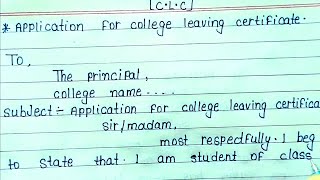 [C.L.C]
* Application for college leaving certificate.
To,
The principal,
college name....
subject :- Application for college leaving certifica
sir/madam,
most respectfully. I beg
to state that. I am student of class